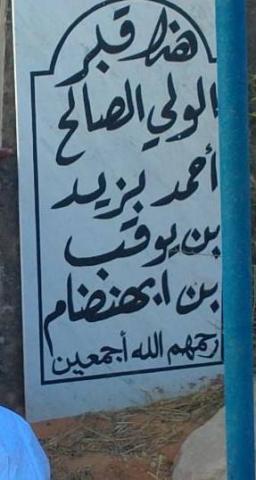 هذا قبر
الولي الصالح
أحمد بزيد
بن يوقب
بن ابهنضام
رحمهم الله أجمعين